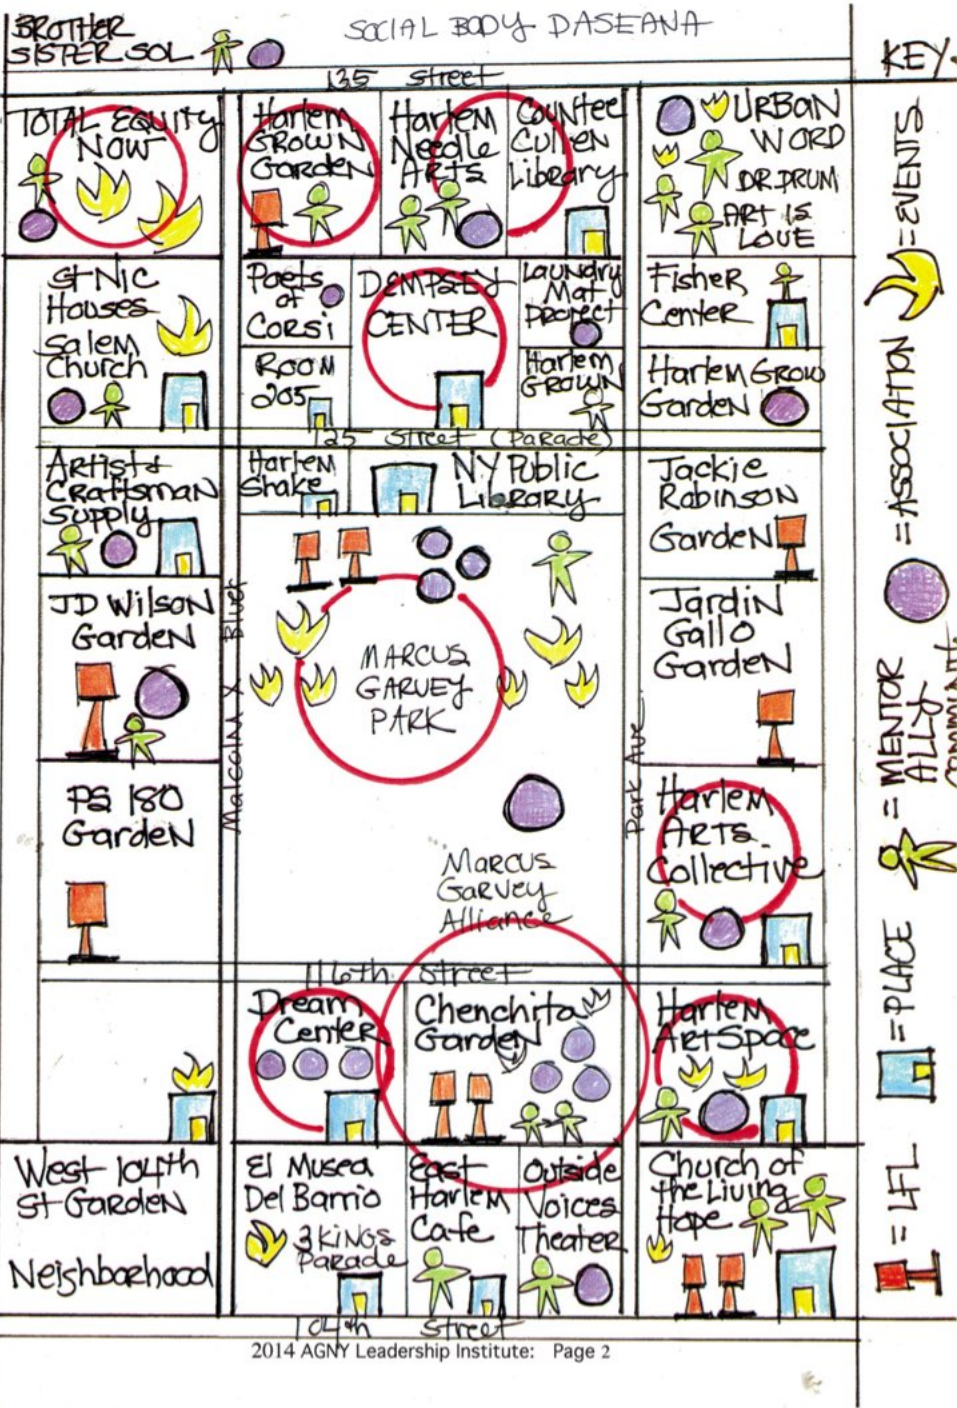 BROTHER
SISTER SOL
SOCIAL BODY DASEANA
KEY.
135 street
TOTAL EQUITY
NOW
Harlem
GROWN
GARDEN
Harlem
Needle
ARTS
Countee
Cullen
Library
URBAN
WORD
DR. DRUM
ART IS
LOVE
St NIC
Houses
Salem
Church
Poets
of
Corsi
DEMPSEY
CENTER
Laundry
Mat
Project
Fisher
Center
Room
205
Harlem
GROWN
Harlem Grow
Garden
125 street (Parade)
Artist &
Craftsman
Supply
Harlem
Shake
NY Public
Library
Jackie
Robinson
Garden
JD Wilson
Garden
Malcolm X
MARCUS
GARVEY
PARK
Jardin
Gallo
Garden
Park Ave
PS 180
Garden
Marcus
Garvey
Alliance
Harlem
ARTS
Collective
116th street
Dream
Center
Chenchita
Garden
Harlem
Art Space
West 104th
St Garden
Neighborhood
El Musea
Del Barrio
3 KINGS
Parade
East
Harlem
Cafe
Outside
Voices
Theater
Church of
the Living
Hope
104th street
2014 AGNY Leadership Institute: Page 2
= EVENTS
= ASSOCIATION
= MENTOR
ALLY
= PLACE
= LFL